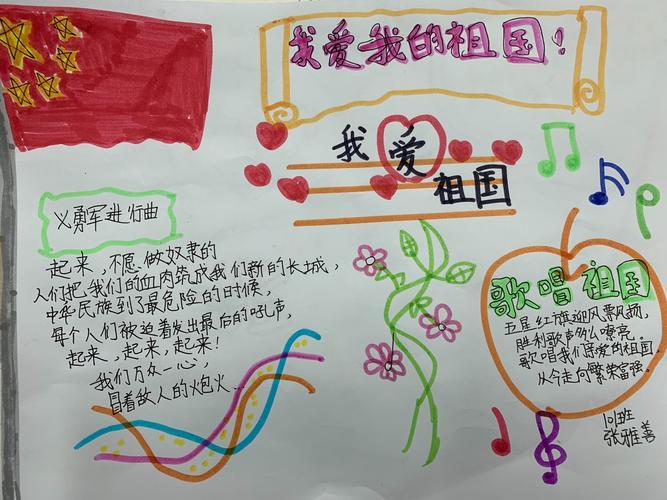 我爱我的祖国！
我爱
祖国
义勇军进行曲
起来，不愿做奴隶的
人们把我们的血肉筑成我们新的长城，
中华民族到了最危险的时候，
每个人们被迫着发出最后的吼声，
起来，起来，起来！
我们万众一心，
冒着敌人的炮火...
歌唱祖国
五星红旗迎风飘扬，
胜利歌声多么嘹亮。
歌唱我们亲爱的祖国，
从今走向繁荣富强。
101班
张雅善